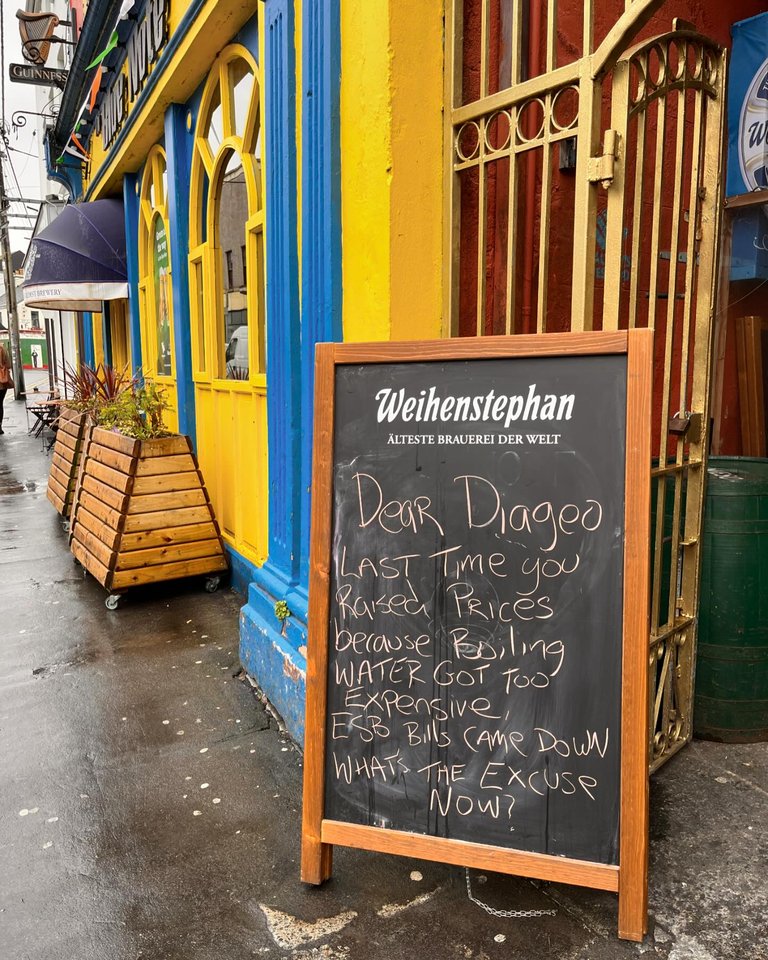 GUINNESS
Weihenstephan
ÄLTESTE BRAUEREI DER WELT
Dear Diageo
LAST Time you
Raised Prices
because Boiling
WATER GOT TOO
EXPENSIVE,
ESB Bills CAME DOWN
WHATS THE EXCUSE
NOW?